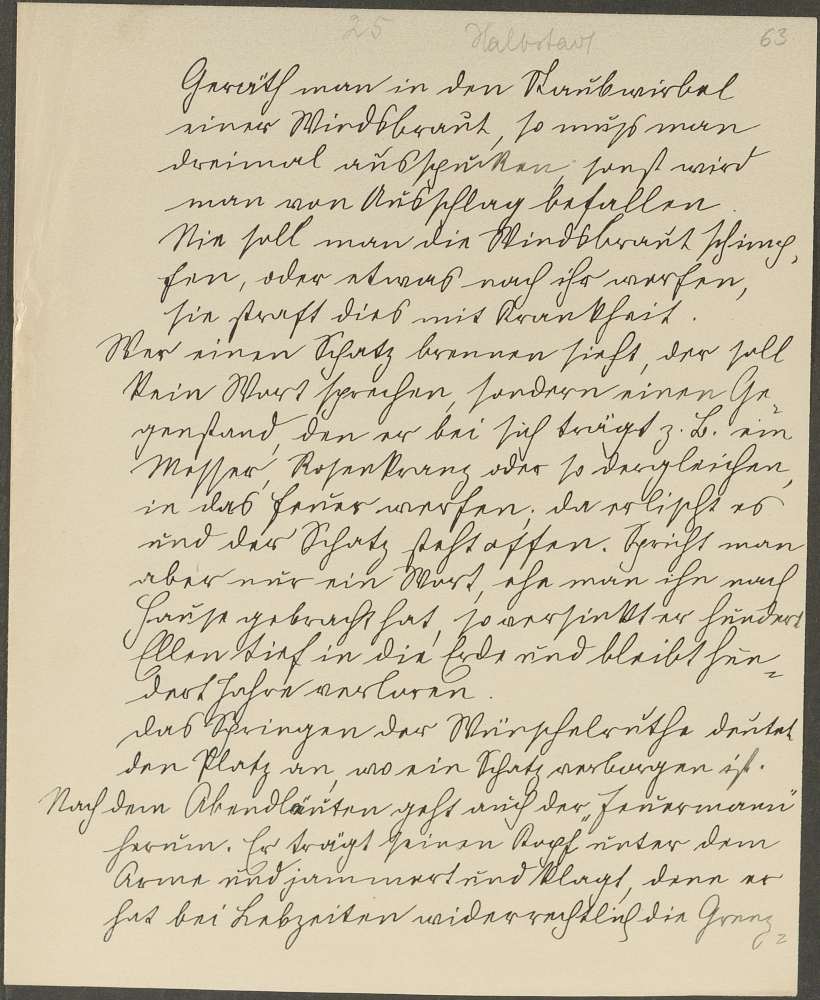 25 Halbstadt 63
Geräth man in den Staubwirbel
einer Windsbraut, so muß man
dreimal ausspucken, sonst wird
man von Ausschlag befallen.
Nie soll man die Windsbraut schimp-
fen, oder etwas nach ihr werfen,
sie straft dies mit Krankheit.
Wer einen Schatz brennen sieht, der soll
kein Wort sprechen, sondern einen Ge-
genstand, den er bei sich trägt z. B. ein
Messer, Rosenkranz oder so dergleichen,
in das Feuer werfen; da erlischt es
und der Schatz steht offen. Spricht man
aber nur ein Wort, ehe man ihn nach
Hause gebracht hat, so versinkt er hundert
Ellen tief in die Erde und bleibt hun=
dert Jahre verloren.
Das Springen der Wünschelruthe deutet
den Platz an, wo ein Schatz verborgen ist.
Nach dem Abendläuten geht auch der „Feuermann"
herum. Er trägt seinen Kopf unter dem
Arme und jammert und klagt, denn er
hat bei Lebzeiten widerrechtlich die Grenz=